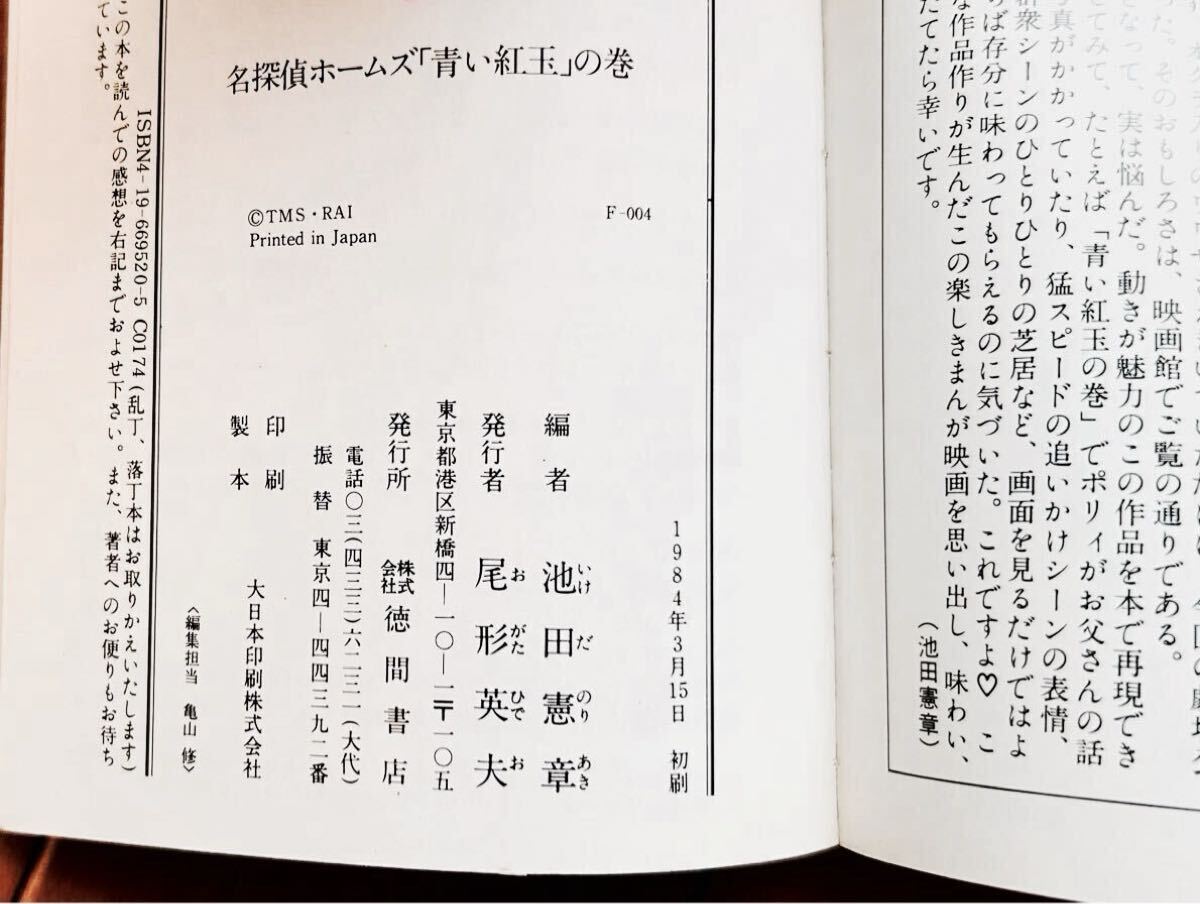 った。そのおもしろさは、映画館でご覧の通りである。
なって、実は悩んだ。動きが魅力のこの作品を本で再現でき
してみて、たとえば「青い紅玉の巻」でポリィがお父さんの話
真がかかっていたり、猛スピードの追いかけシーンの表情、
群衆シーンのひとりひとりの芝居など、画面を見るだけではよ
らば存分に味わってもらえるのに気づいた。これですよ♡ こ
な作品作りが生んだこの楽しきまんが映画を思い出し、味わい、
たてたら幸いです。
(池田憲章)
名探偵ホームズ「青い紅玉」の巻
©TMS・RAI
Printed in Japan
F-004
1984年3月15日 初刷
編者 池田憲章
いけ だ のり あき
発行者 尾形英夫
お がた ひで お
東京都港区新橋四―一〇―一〒一〇五
発行所 株式会社徳間書店
電話〇三(四三三)六二三一(大代)
振替 東京四―四四三九二番
印刷
製本
大日本印刷株式会社
〈編集担当 亀山 修〉
ISBN4-19-669520-5 C0174(乱丁、落丁本はお取りかえいたします)
この本を読んでの感想を右記までおよせ下さい。また、著者へのお便りもお待ち
ています。